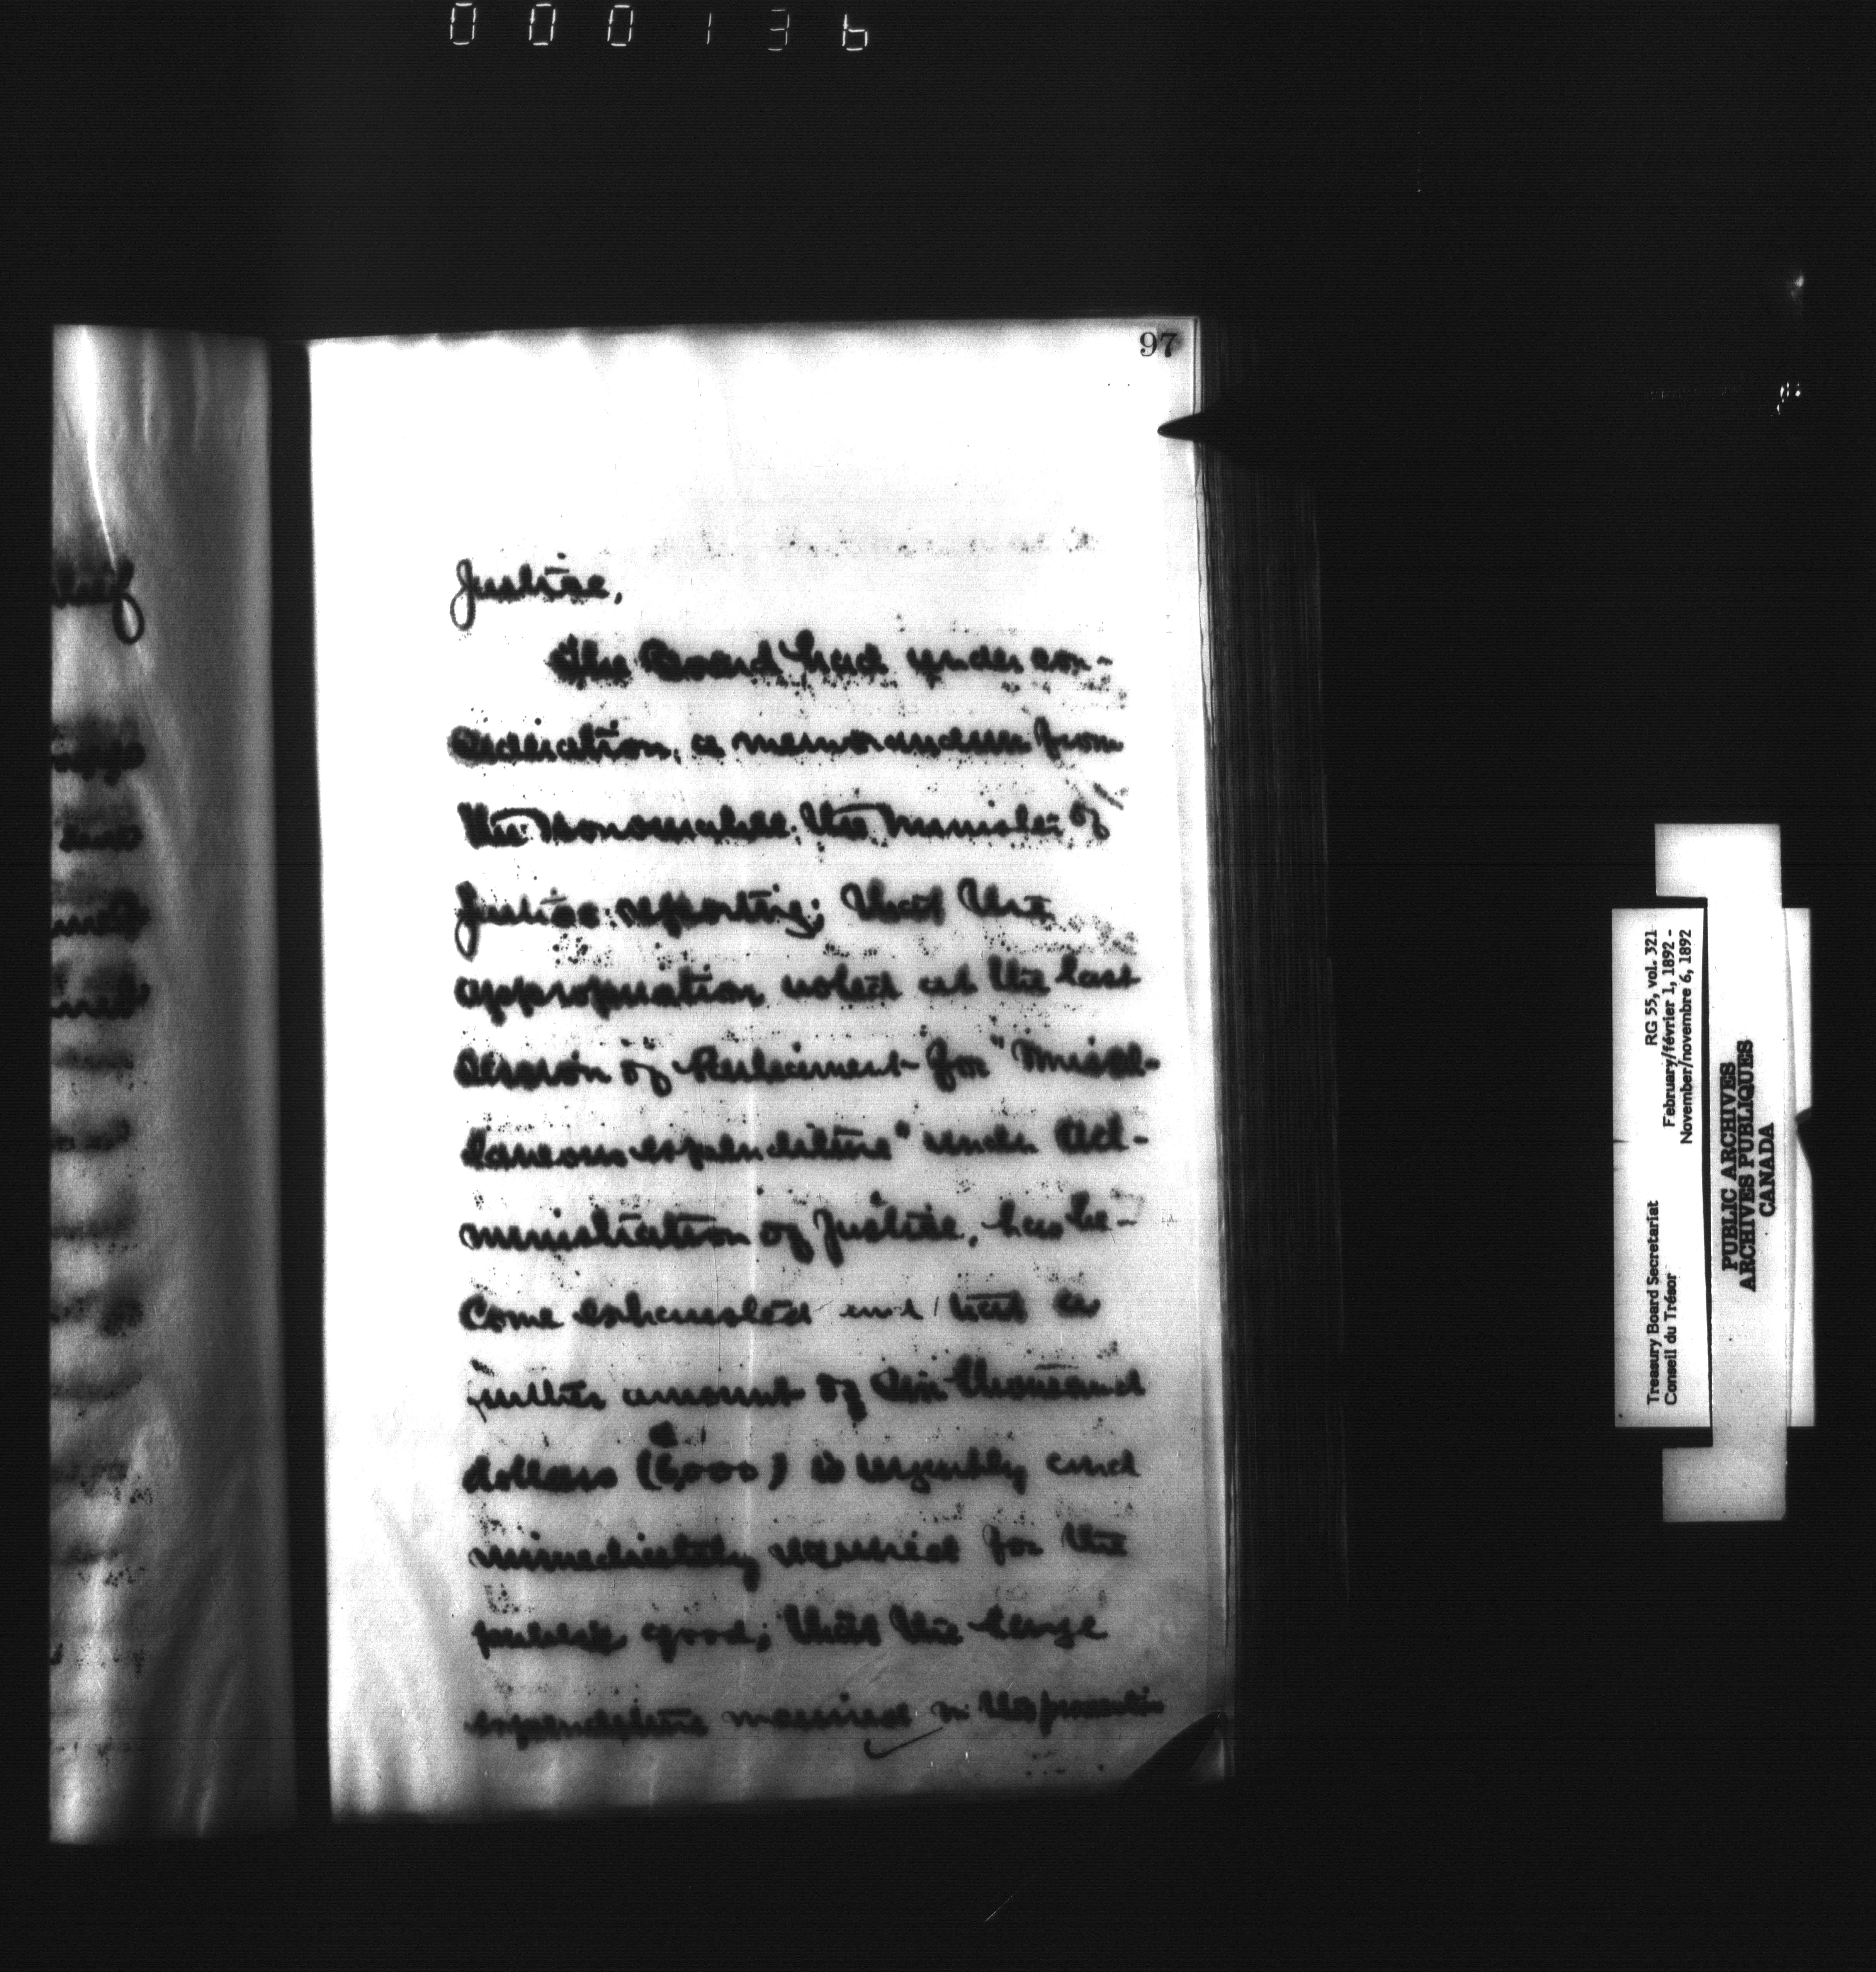 000136
97
Justice,
The Board had under con-
sideration, a memorandum from
the Honourable, the Minister of
Justice reporting; that the
appropriation voted at the last
session of Parliament for "Miscel-
laneous expenditure" under Ad-
ministration of Justice, has be-
come exhausted and that a
further amount of six thousand
dollars (6,000) is urgently and
immediately required for the
public good; that the large
expenditure in the
Treasury Board Secretariat RG 55, vol. 321
Conseil du Trésor February/février 1, 1892 -
November/novembre 6, 1892
PUBLIC ARCHIVES
ARCHIVES PUBLIQUES
CANADA